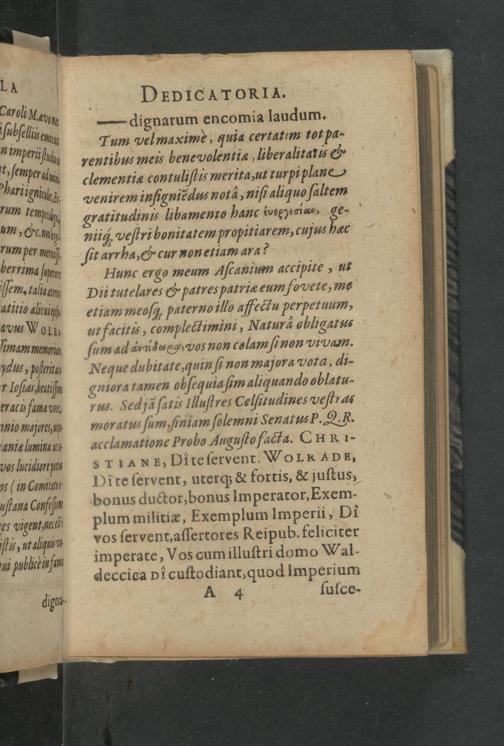 DEDICATORIA.
—— dignarum encomia laudum.
Tum vel maximè, quia certatim tot pa-
rentibus meis benevolentiæ, liberalitatis &
clementiæ contulistis merita, ut turpi plane
venirem insigniēdus notâ, nisi aliquo saltem
gratitudinis libamento hanc ἐυεργεσίαν, ge-
niiq́; vestri bonitatem propitiarem, cujus hæc
sit arrha, & cur non etiam ara?
Hunc ergo meum Ascanium accipite, ut
Dii tutelares & patres patriæ eum fovete, me
etiam meosq́; paterno illo affectu perpetuum,
ut facitis, complectimini, Naturâ obligatus
sum ad vos non colam si non vivam.
Neque dubitate, quin si non majora vota, di-
gniora tamen obsequia sim aliquando oblatu-
rus. Sed jā satis Illustres Celsitudines vestras
moratus sum, finiam solemni Senatus P. Q. R.
acclamatione Probo Augusto facta. CHRI-
STIANE, Dî te servent, WOLRADE,
Dî te servent, uterq; & fortis, & justus,
bonus ductor, bonus Imperator, Exem-
plum militiæ, Exemplum Imperii, Dî
vos servent, assertores Reipub. feliciter
imperate, Vos cum illustri domo Wal-
deccica Dî custodiant, quod Imperium
A 4 susce-
LA
Caroli M. ævo
subselliis
n imperii
igniculos,
rum
um, &c.
rum per
berrima
issem, talia
atitio alicui
avus WOLR
simam memoriam
posteritat
r Iosias, beatissimæ
eracis fama
nnio majores,
lumina
vos lucidiore
os (in Comitat
ustana
es vigent,
istis, ut aliquid
ui publicè in
digna-